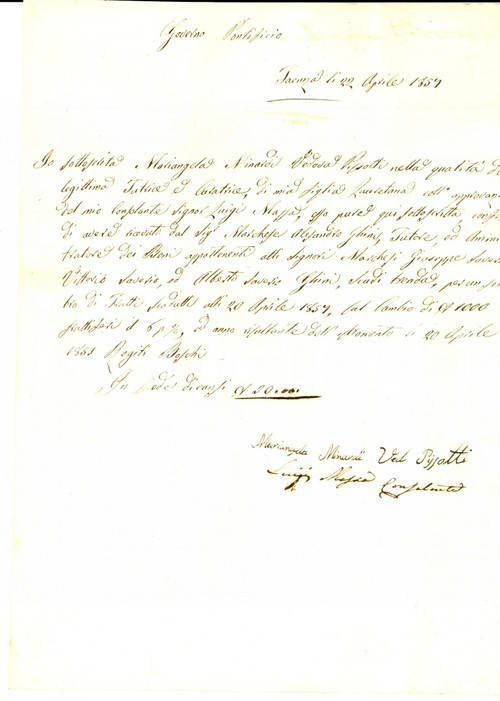 Governo Pontificio
Faenza li 22 Aprile 1857
Io sottoscritta Mariangela Minardi Vedova Pissotti nella qualità di
legittima Tutrice e Curatrice, di mia figlia Lauretana coll' approvan
del mio Consulente Signor Luigi Masia, esso pure qui sottoscritto, confes
di avere ricevuti dal Sigr Marchese Alessandro Ghini, Tutore, ed Ammini
stratore dei Beni appartenenti alli Signori Marchesi Giuseppe Saverio
Vittorio Saverio, ed Alberto Saverio Ghini, Scudi trenda, per un
di Frutti scaduti alli 20 Aprile 1857, sul Cambio di 1000
fruttiferi il 6 p %, ed anno risultante dell' Istromento li 20 Aprile
1851 Rogiti Boschi
In fede dicansi 20
Mariangela Minardi Ved Pissotti
Luigi Masia Consulente